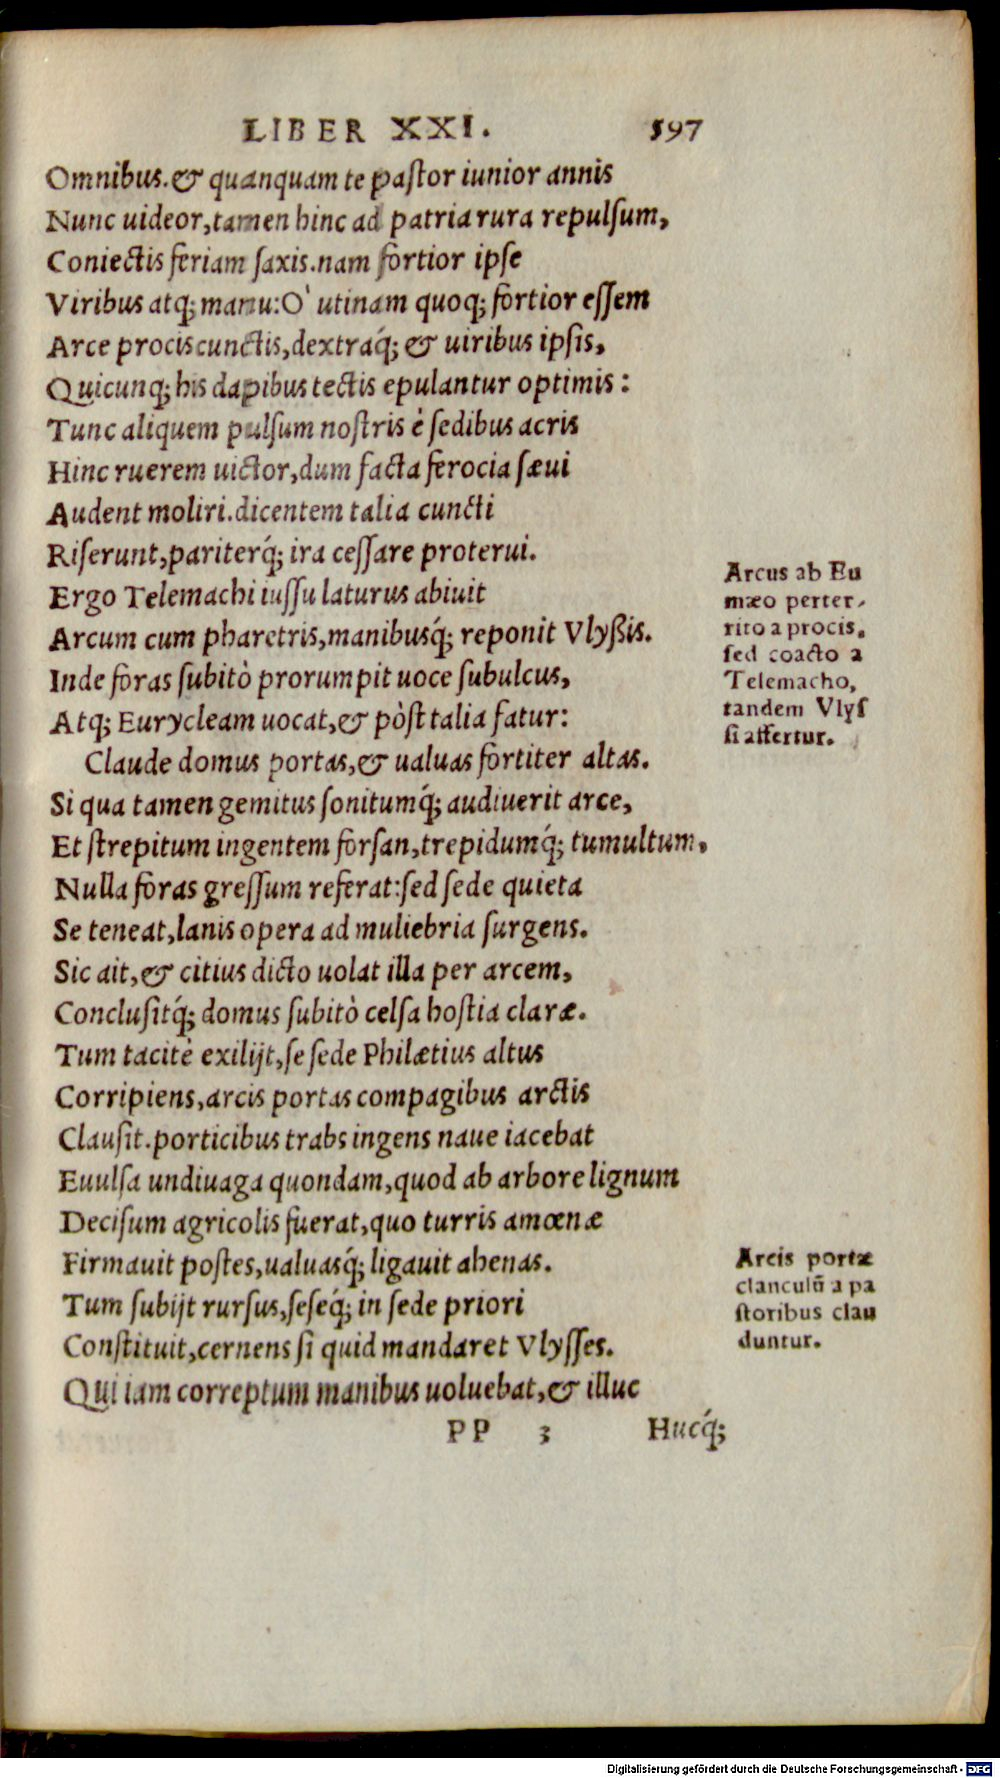 LIBER XXI. 597
Omnibus. & quanquam te pastor iunior annis
Nunc uideor, tamen hinc ad patria rura repulsum,
Coniectis feriam saxis. nam fortior ipse
Viribus atq; manu: O` utinam quoq; fortior essem
Arce procis cunctis, dextraq́; & uiribus ipsis,
Quicunq; his dapibus tectis epulantur optimis:
Tunc aliquem pulsum nostris è sedibus acris
Hinc ruerem uictor, dum facta ferocia sæui
Audent moliri. dicentem talia cuncti
Riserunt, pariterq́; ira cessare proterui.
Ergo Telemachi iussu laturus abiuit
Arcum cum pharetris, manibusq́; reponit Vlyßis.
Inde foras subitò prorumpit uoce subulcus,
Atq; Eurycleam uocat, & pòst talia fatur:
Claude domus portas, & ualuas fortiter altas.
Si qua tamen gemitus sonitumq́; audiuerit arce,
Et strepitum ingentem forsan, trepidumq́; tumultum,
Nulla foras gressum referat: sed sede quieta
Se teneat, lanis opera ad muliebria surgens.
Sic ait, & citius dicto uolat illa per arcem,
Conclusitq́; domus subitò celsa hostia claræ.
Tum tacitè exilijt, se sede Philætius altus
Corripiens, arcis portas compagibus arctis
Clausit. porticibus trabs ingens naue iacebat
Euulsa undiuaga quondam, quod ab arbore lignum
Decisum agricolis fuerat, quo turris amœnæ
Firmauit postes, ualuasq́; ligauit ahenas.
Tum subijt rursus, seseq́; in sede priori
Constituit, cernens si quid mandaret Vlysses.
Qui iam correptum manibus uoluebat, & illuc
PP 3 Hucq́;
Arcus ab Eu
mæo perter-
rito a procis,
sed coacto a
Telemacho,
tandem Vlys
si affertur.
Arcis portæ
clanculũ a pa
storibus clau
duntur.
Digitalisierung gefördert durch die Deutsche Forschungsgemeinschaft - DFG